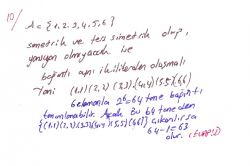 10/
A = {1,2,3,4,5,6}
simetrik ve ters simetrik olup,
yansıyan olmayacak ise
bağıntı aynı ikililerden oluşmalı
Yani (1,1) (2,2) (3,3), (4,4) (5,5) (6,6)
elemanla 2⁶ = 64 tane bağıntı
tanımlanabilir. Ancak bu 64 tane den
{(1,1) (2,2) (3,3) (4,4) (5,5) (6,6)} çıkarılırsa
64 - 1 = 63
olur.